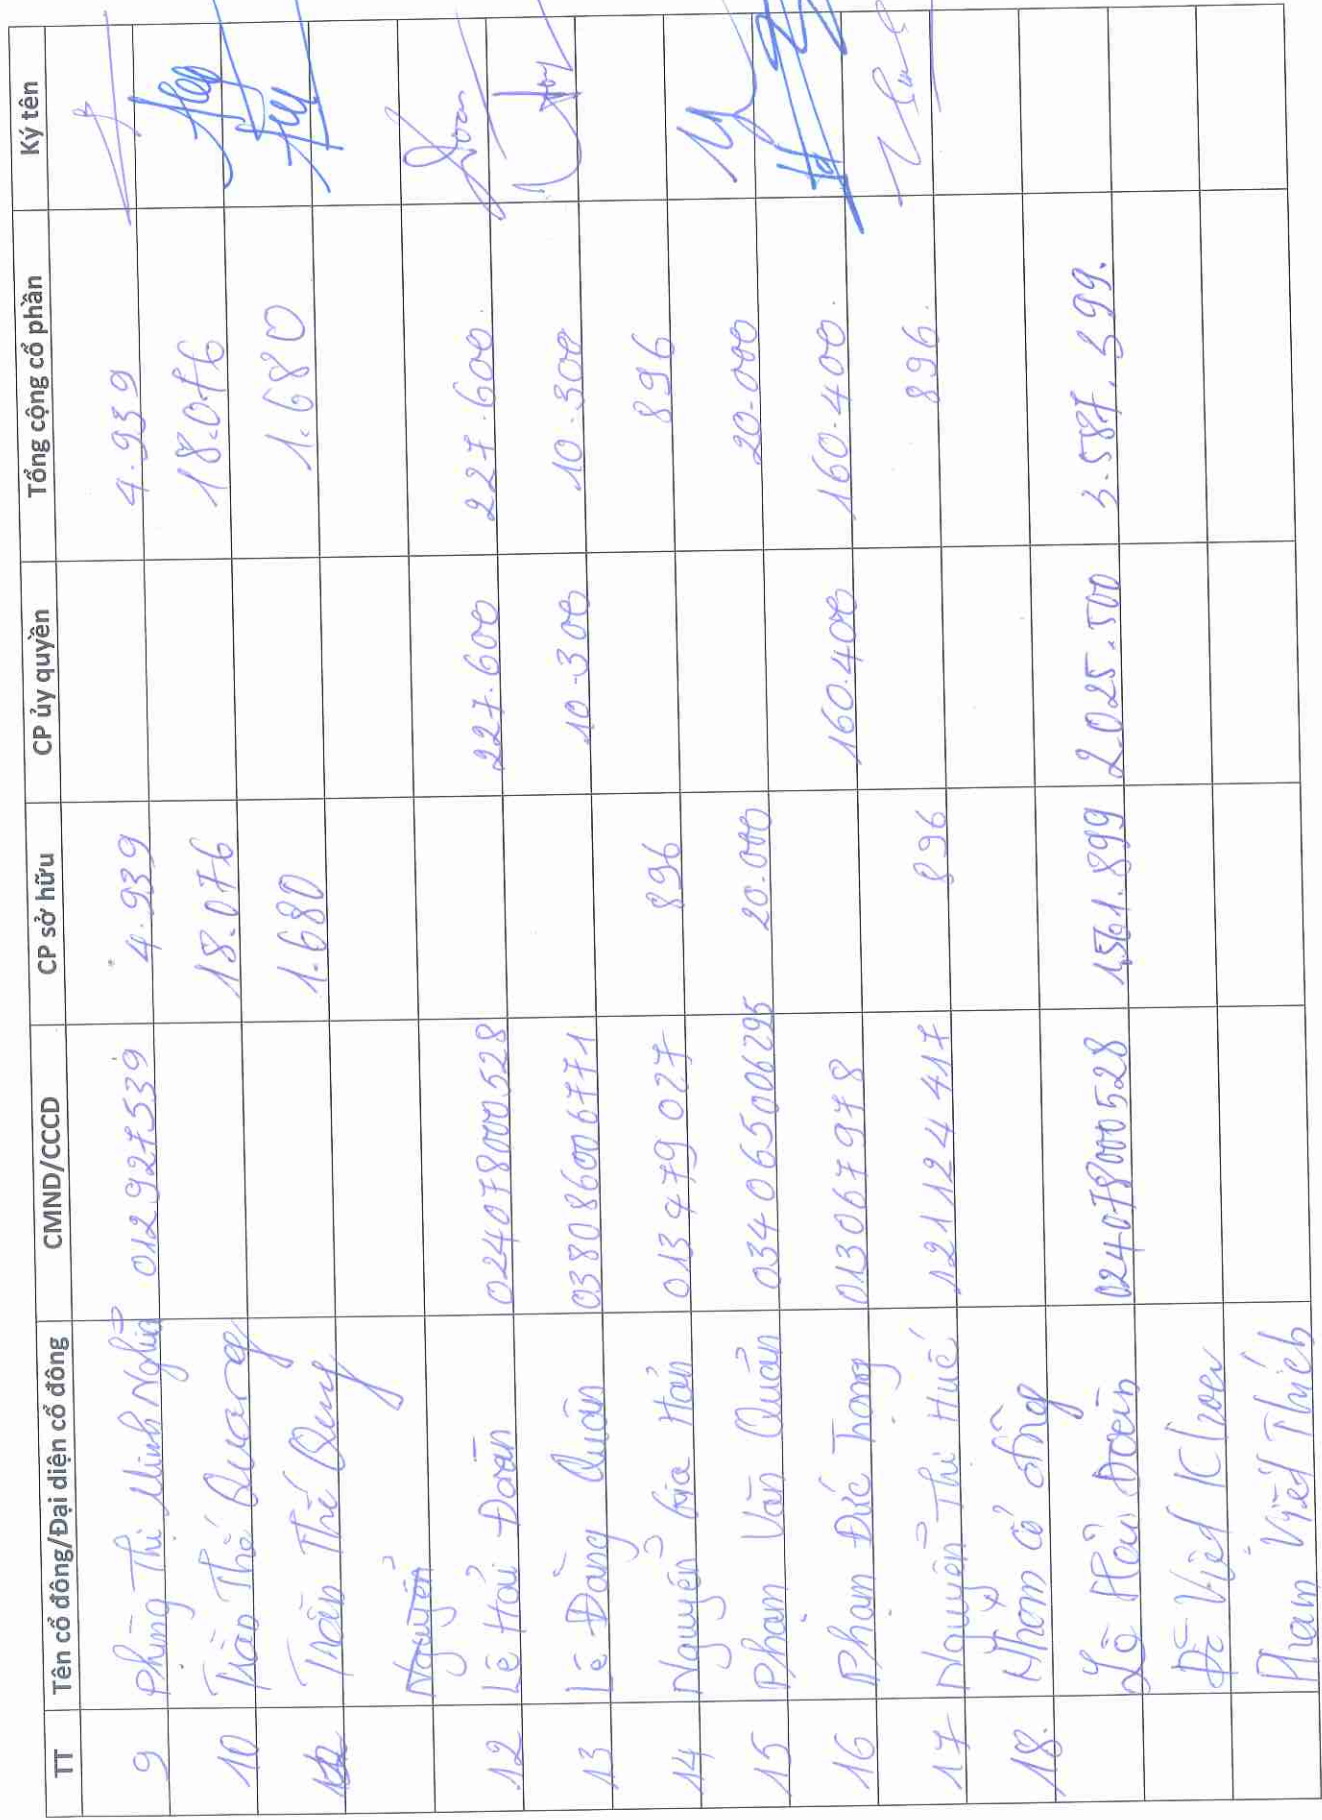 TT Tên cổ đông/Đại diện cổ đông CMND/CCCD CP sở hữu CP ủy quyền Tổng cộng cổ phần Ký tên
9 Phùng Thị Minh Nghĩa 012927539 4.939 4.939
10 Trần Thế Quang 18.076 18.076
Trần Thế Quny 1.680 1.680
Nguyễn
12 Lê Hải Đoàn 024078000528 227.600 227.600. Doan
13 Lê Đăng Quân 038086006771 10.300 10.300
14 Nguyễn Gia Hân 013479027 896 896
15 Phạm Văn Quân 034065006295 20.000 20.000
16 Phạm Đức Trọng 013067978 160.400 160.400.
17 Nguyễn Thị Huế 121124417 896 896.
18. Nhóm cổ đông
Lê Hải Đoàn 024078000528 1.561.899 2.025.500 3.587.399.
Đỗ Việt Khoa
Phạm Viết Thích